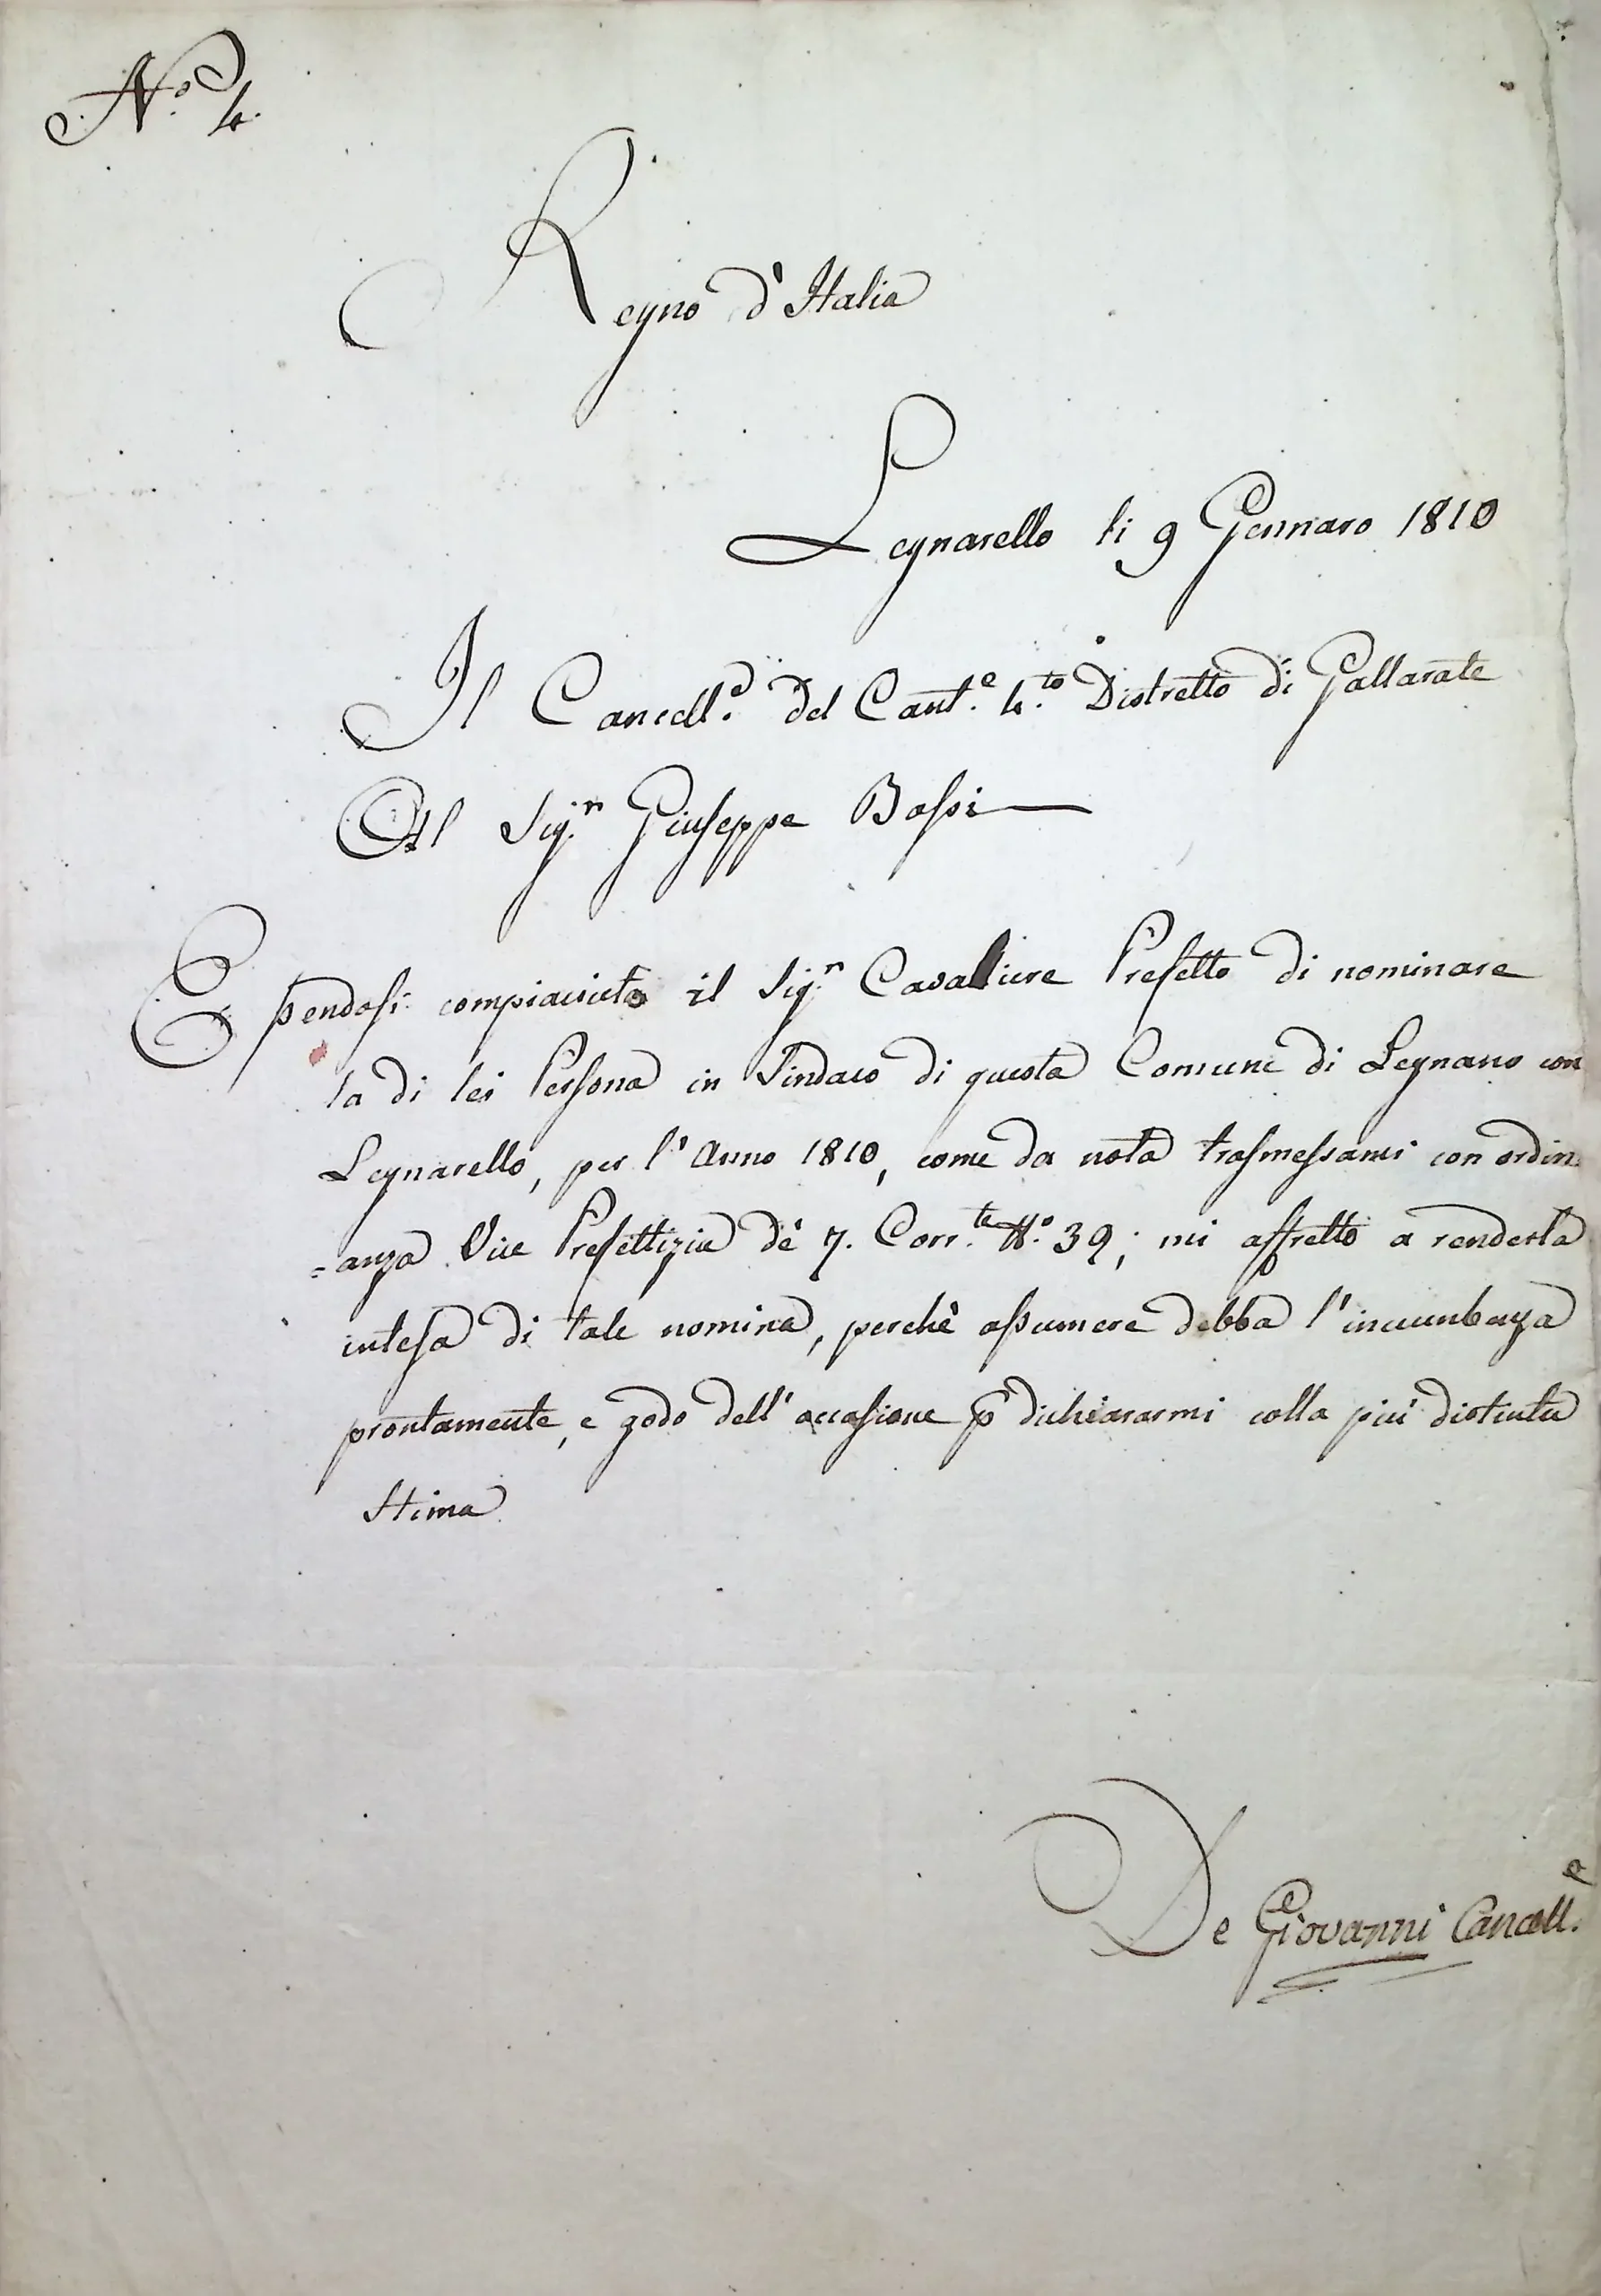 N.º 4.
Regno d'Italia
Legnarello li 9 Gennaro 1810
Il Cancell.e del Cant.e 4.to Distretto di Gallarate
Al Sig.r Giuseppe Bossi
Essendosi compiaciuto il Sig.r Cavaliere Prefetto di nominare
la di lei Persona in Sindaco di questa Comune di Legnano con
Legnarello, per l'Anno 1810, come da nota trasmessami con ordin
=anza Vice Prefettizia dè 7. Corr.te N.º 39; mi affretto a renderla
intesa di tale nomina, perchè assumere debba l'incumbenza
prontamente, e godo dell'occasione p dichiararmi colla più distinta
stima
De Giovanni Cancell.e